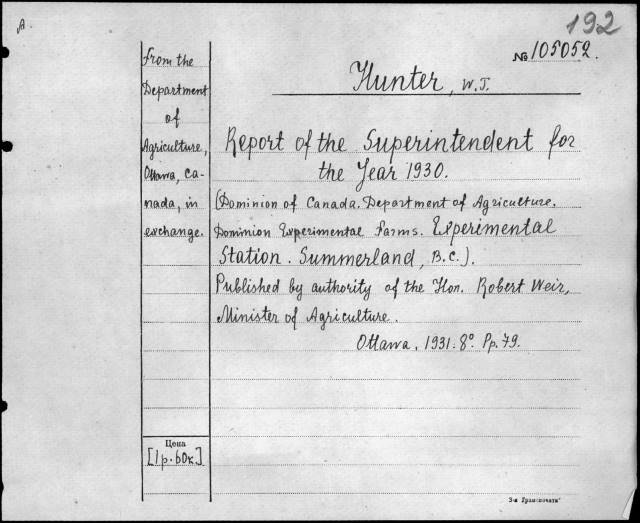 A
192
№ 105052.
From the
Department
of
Agriculture,
Ottawa, Ca-
nada, in
exchange.
Hunter, W.J.
Report of the Superintendent for
the Year 1930.
(Dominion of Canada. Department of Agriculture.
Dominion Experimental Farms. Experimental
Station. Summerland, B.C.).
Published by authority of the Hon. Robert Weir,
Minister of Agriculture.
Ottawa, 1931. 8° Pp. 79.
Цена
[1 р. 60к.]
3-я Транспечати